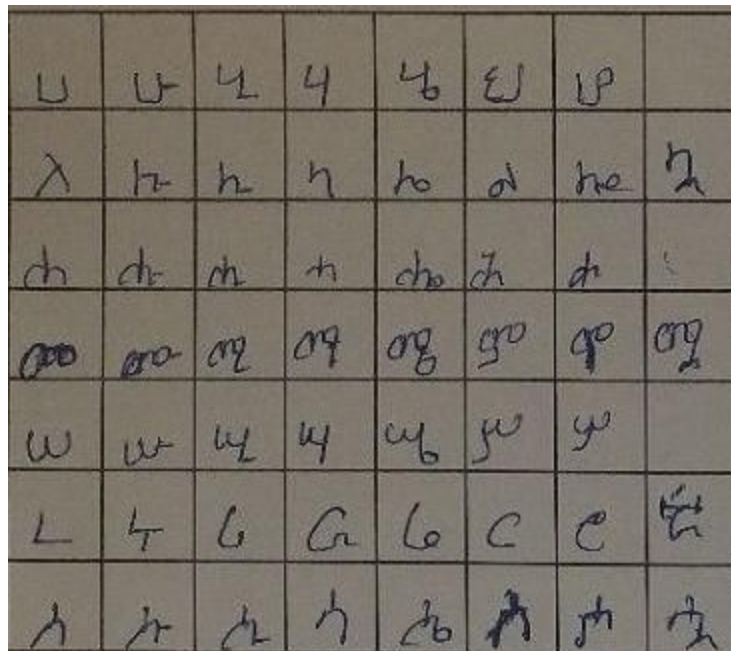 ሀ ሁ ሂ ሃ ሄ ህ ሆ
ለ ሉ ሊ ላ ሌ ል ሎ ሏ
ሐ ሑ ሒ ሓ ሔ ሕ ሖ
መ ሙ ሚ ማ ሜ ም ሞ ሟ
ሠ ሡ ሢ ሣ ሤ ሥ ሦ
ረ ሩ ሪ ራ ሬ ር ሮ
ሰ ሱ ሲ ሳ ሴ ስ ሶ ሷ